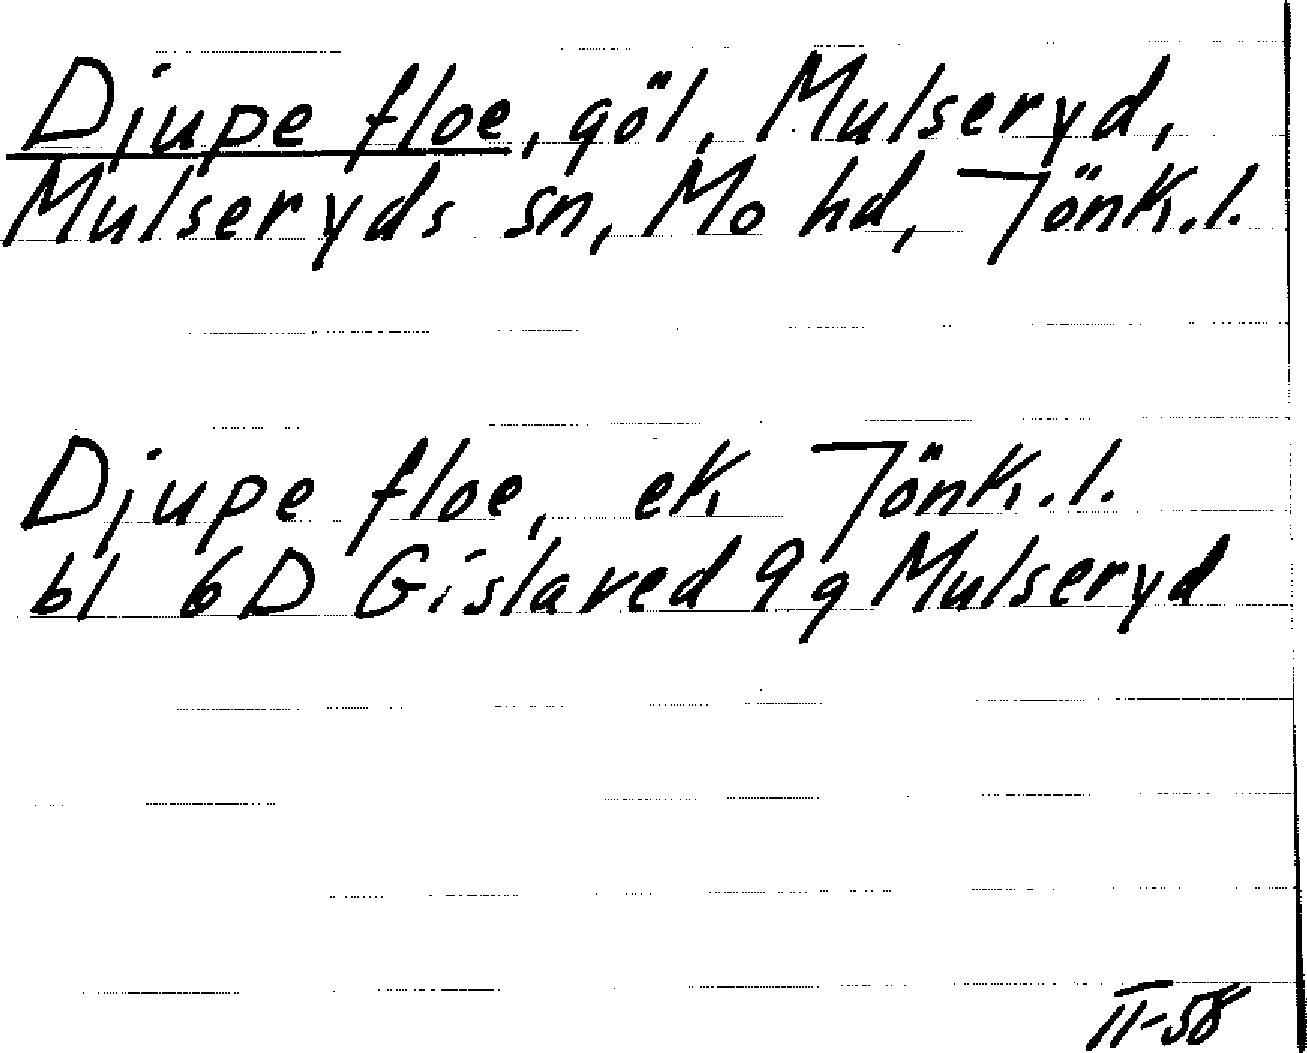 Djupe floe, göl, Mulseryd,
Mulseryds sn, Mo hd, Jönk. l.
Djupe floe, ek Jönk. l.
bl 6D Gislaved 9g Mulseryd
II-58